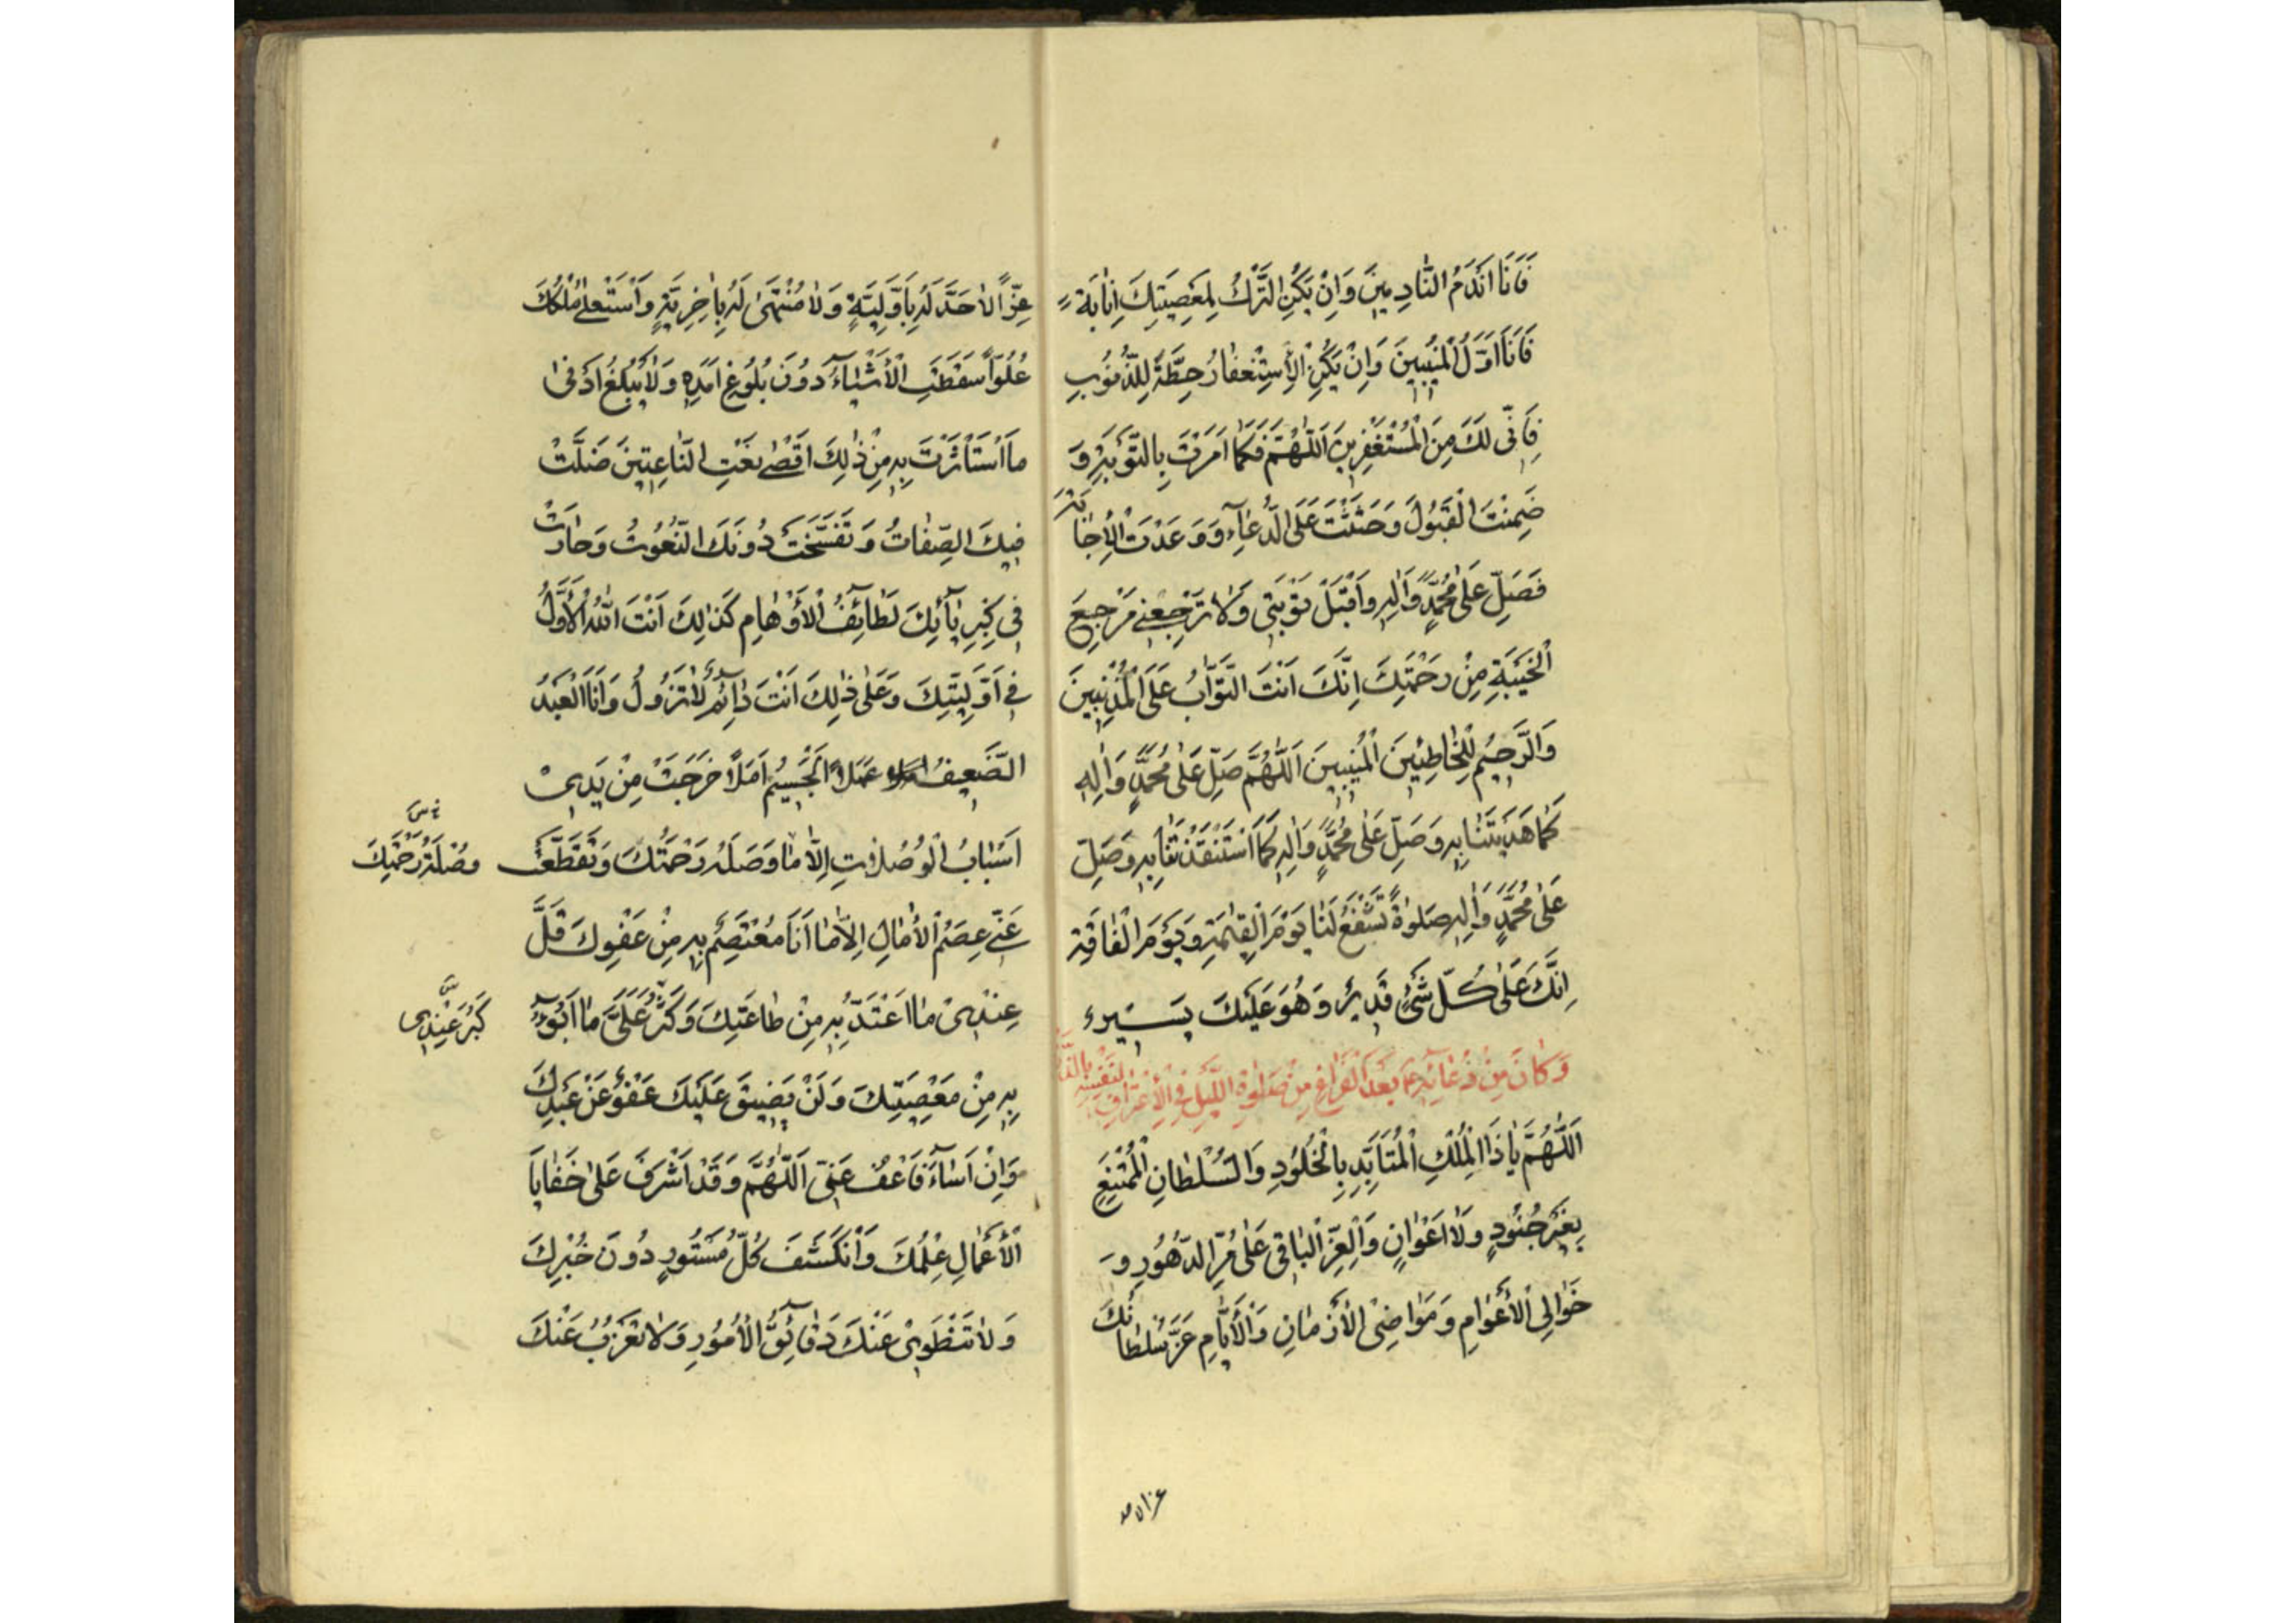 فَأَنَا أَنْدَمُ النَّادِمِينَ وَإِنْ يَكُنِ التَّرْكُ لِمَعْصِيَتِكَ إِنَابَةً
فَأَنَا أَوَّلُ الْمُنِيبِينَ وَإِنْ يَكُنِ الْإِسْتِغْفَارُ حِطَّةً لِلذُّنُوبِ
فَإِنِّي لَكَ مِنَ الْمُسْتَغْفِرِينَ اَللَّهُمَّ فَكَمَا أَمَرْتَ بِالتَّوْبَةِ وَ
ضَمِنْتَ الْقَبُولَ وَحَثَثْتَ عَلَى الدُّعَاءِ وَوَعَدْتَ الْإِجَابَةَ
فَصَلِّ عَلَى مُحَمَّدٍ وَآلِهِ وَاقْبَلْ تَوْبَتِي وَلَا تَرْجِعْنِي مَرْجِعَ
الْخَيْبَةِ مِنْ رَحْمَتِكَ إِنَّكَ أَنْتَ التَّوَّابُ عَلَى الْمُذْنِبِينَ
وَالرَّحِيمُ لِلْخَاطِئِينَ الْمُنِيبِينَ اَللَّهُمَّ صَلِّ عَلَى مُحَمَّدٍ وَآلِهِ
كَمَا هَدَيْتَنَا بِهِ وَصَلِّ عَلَى مُحَمَّدٍ وَآلِهِ كَمَا اسْتَنْقَذْتَنَا بِهِ وَصَلِّ
عَلَى مُحَمَّدٍ وَآلِهِ صَلَوٰةً تَشْفَعُ لَنَا يَوْمَ الْقِيٰمَةِ وَيَوْمَ الْفَاقَةِ
إِنَّكَ عَلَى كُلِّ شَيْءٍ قَدِيرٌ وَهُوَ عَلَيْكَ يَسِيرٌ
وَكَانَ مِنْ دُعَائِهِ ع بَعْدَ الْفَرَاغِ مِنْ صَلَوٰةِ اللَّيْلِ لِنَفْسِهِ فِي الْإِعْتِرَافِ
اَللَّهُمَّ يَا ذَا الْمُلْكِ الْمُتَأَبِّدِ بِالْخُلُودِ وَالسُّلْطَانِ الْمُمْتَنِعِ
بِغَيْرِ جُنُودٍ وَلَا أَعْوَانٍ وَالْعِزِّ الْبَاقِي عَلَى مَرِّ الدُّهُورِ وَ
خَوَالِي الْأَعْوَامِ وَمَوَاضِي الْأَزْمَانِ وَالْأَيَّامِ عَزَّ سُلْطَانُكَ
عِزًّا لَا حَدَّ لَهُ بِأَوَّلِيَّةٍ وَلَا مُنْتَهَى لَهُ بِآخِرِيَّةٍ وَاسْتَعْلَى مُلْكُكَ
عُلُوًّا سَقَطَتِ الْأَشْيَاءُ دُونَ بُلُوغِ أَمَدِهِ وَلَا يَبْلُغُ أَدْنَى
مَا اسْتَأْثَرْتَ بِهِ مِنْ ذٰلِكَ أَقْصَى نَعْتِ النَّاعِتِينَ ضَلَّتْ
فِيكَ الصِّفَاتُ وَتَفَسَّخَتْ دُونَكَ النُّعُوتُ وَحَارَتْ
فِي كِبْرِيَائِكَ لَطَائِفُ الْأَوْهَامِ كَذٰلِكَ أَنْتَ اللهُ الْأَوَّلُ
فِي أَوَّلِيَّتِكَ وَعَلَى ذٰلِكَ أَنْتَ دَائِمٌ لَا تَزُولُ وَأَنَا الْعَبْدُ
الضَّعِيفُ عَمَلًا الْجَسِيمُ أَمَلًا خَرَجَتْ مِنْ يَدِي
أَسْبَابُ الْوُصُلَاتِ إِلَّا مَا وَصَلَهُ رَحْمَتُكَ وَتَقَطَّعَتْ
وُصْلَةُ رَحْمَتِكَ
عَنِّي عِصَمُ الْآمَالِ إِلَّا مَا أَنَا مُعْتَصِمٌ بِهِ مِنْ عَفْوِكَ قَلَّ
عِنْدِي مَا أَعْتَدُّ بِهِ مِنْ طَاعَتِكَ وَكَثُرَ عَلَيَّ مَا أَبُوءُ
كَبُرَ عِنْدِي
بِهِ مِنْ مَعْصِيَتِكَ وَلَنْ يَضِيقَ عَلَيْكَ عَفْوٌ عَنْ عَبْدِكَ
وَإِنْ أَسَاءَ فَاعْفُ عَنِّي اَللَّهُمَّ وَقَدْ أَشْرَفَ عَلَى خَفَايَا
الْأَعْمَالِ عِلْمُكَ وَانْكَشَفَ كُلُّ مَسْتُورٍ دُونَ خُبْرِكَ
وَلَا تَنْطَوِي عَنْكَ دَقَائِقُ الْأُمُورِ وَلَا تَعْزُبُ عَنْكَ